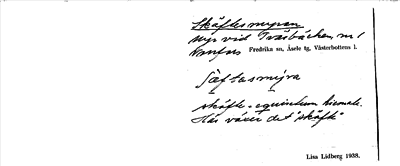 Skäftesmyran
myr vid Tvåbäcken, nr 1
Fredrika sn, Åsele tg, Västerbottens l.
skäfte = equisetum hiemale.
Här växer det "skäfte"
Lisa Lidberg 1938.